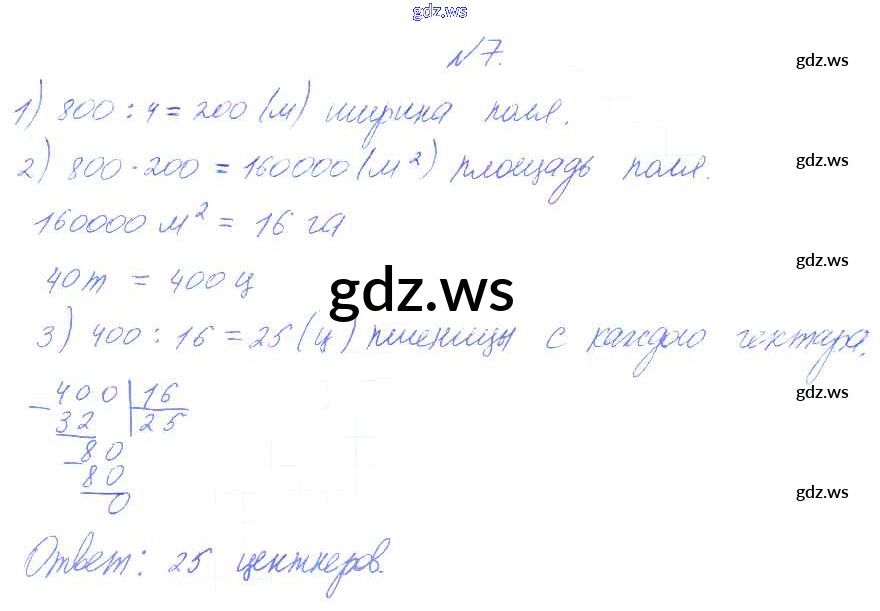 gdz.ws
№7.
gdz.ws
1) 800 : 4 = 200 (м) ширина поля.
2) 800 · 200 = 160000 (м²) площадь поля.
gdz.ws
160000 м² = 16 га
gdz.ws
40 т = 400 ц
gdz.ws
3) 400 : 16 = 25 (ц) пшеницы с каждого гектара.
400 | 16
gdz.ws
- 32 | 25
80
- 80
gdz.ws
0
Ответ: 25 центнеров.
gdz.ws